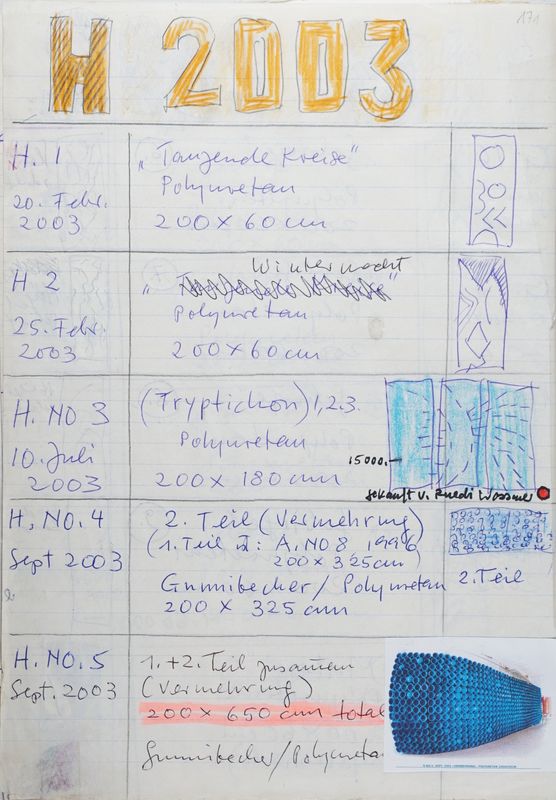 171
H 2003
H. 1
20. Febr.
2003
„Tanzende Kreise"
Polyuretan
200 x 60 cm
H 2
25. Febr.
2003
Winternacht
Polyuretan
200 x 60 cm
H. NO 3
10. Juli
2003
(Tryptichon) 1,2.3.
Polyuretan
200 x 180 cm
15000.-
gekauft v. Ruedi
H, NO. 4
Sept 2003
2. Teil (Vermehrung)
(1. Teil : A. NO 8 1996
200 x 325 cm
Gummibecher / Polyuretan
200 x 325 cm
2. Teil
H. NO. 5
Sept. 2003
1. + 2. Teil zusammen
(Vermehrung)
200 x 650 cm total
Gummibecher/Polyuretan